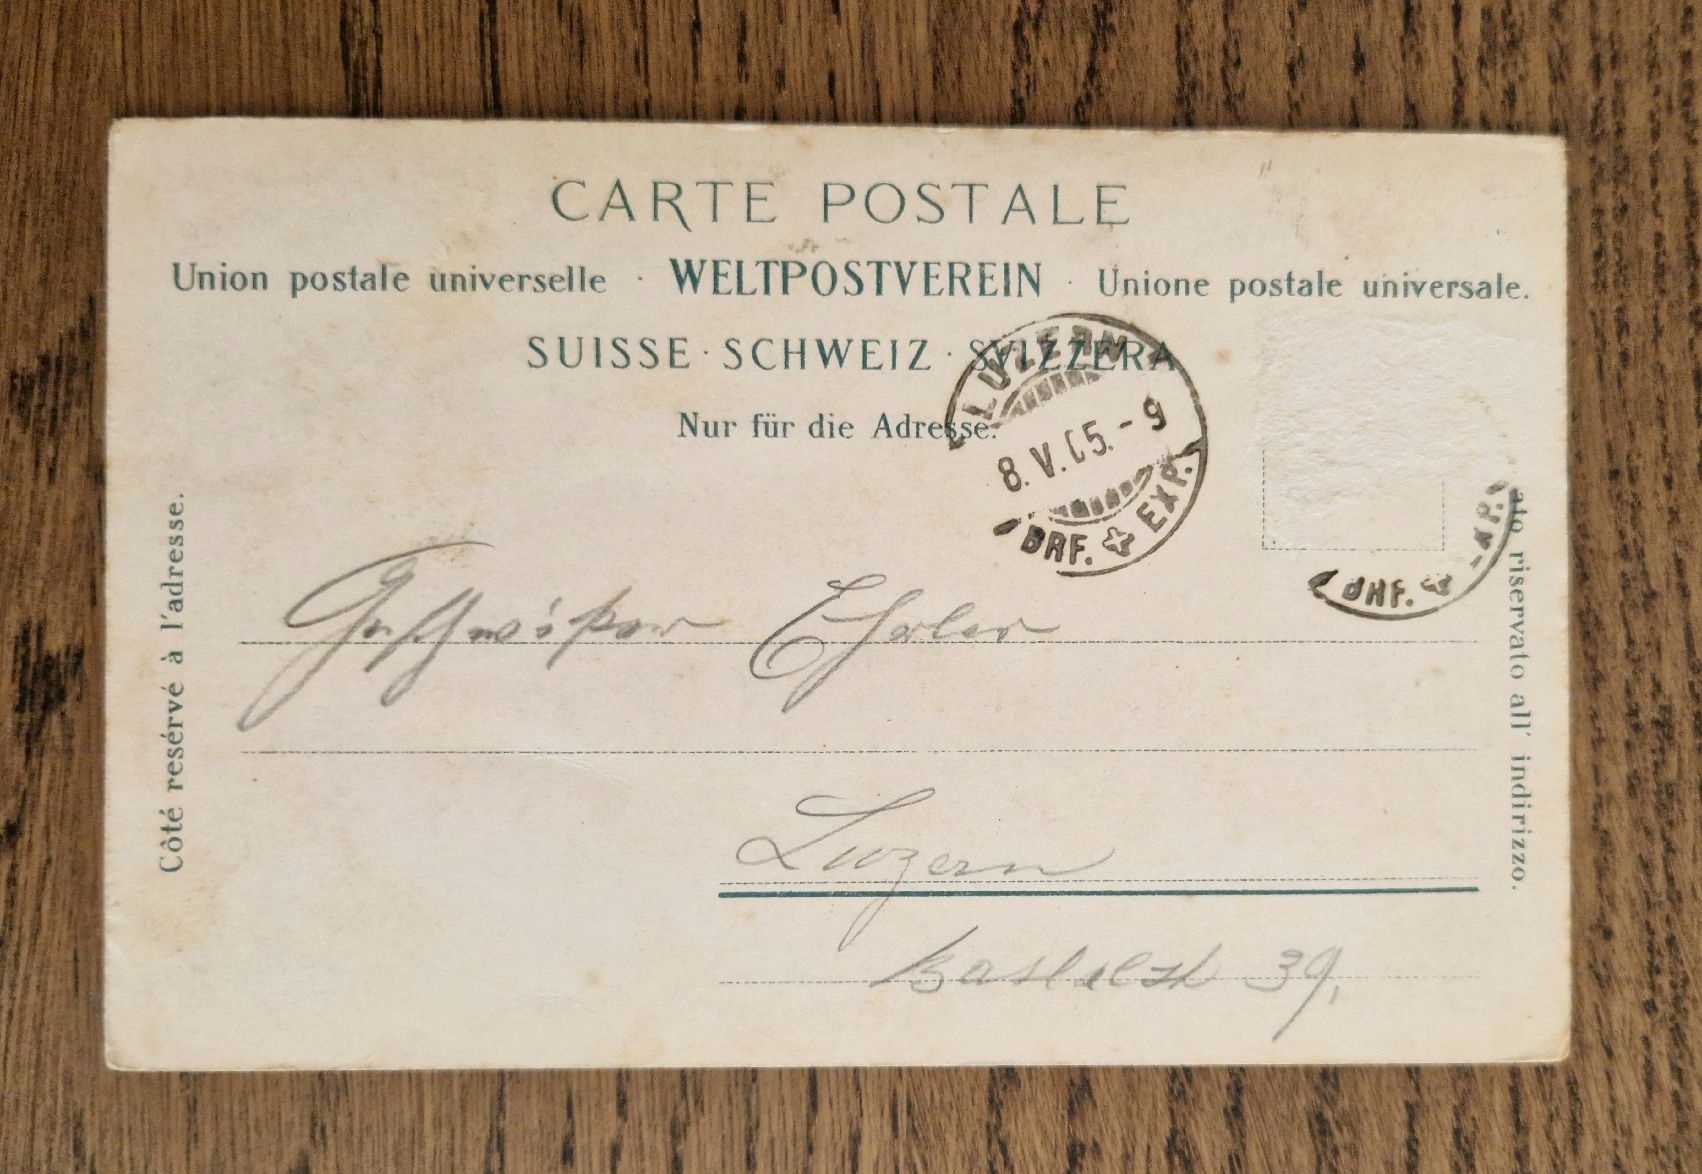 CARTE POSTALE
Union postale universelle · WELTPOSTVEREIN · Unione postale universale.
SUISSE · SCHWEIZ · SVIZZERA
Nur für die Adresse.
LUZERN
8. V. 05. - 9
BRF. EXP.
BRF. XP.
Côté resérvé à l'adresse.
ato riservato all' indirizzo.
Luzern
39,